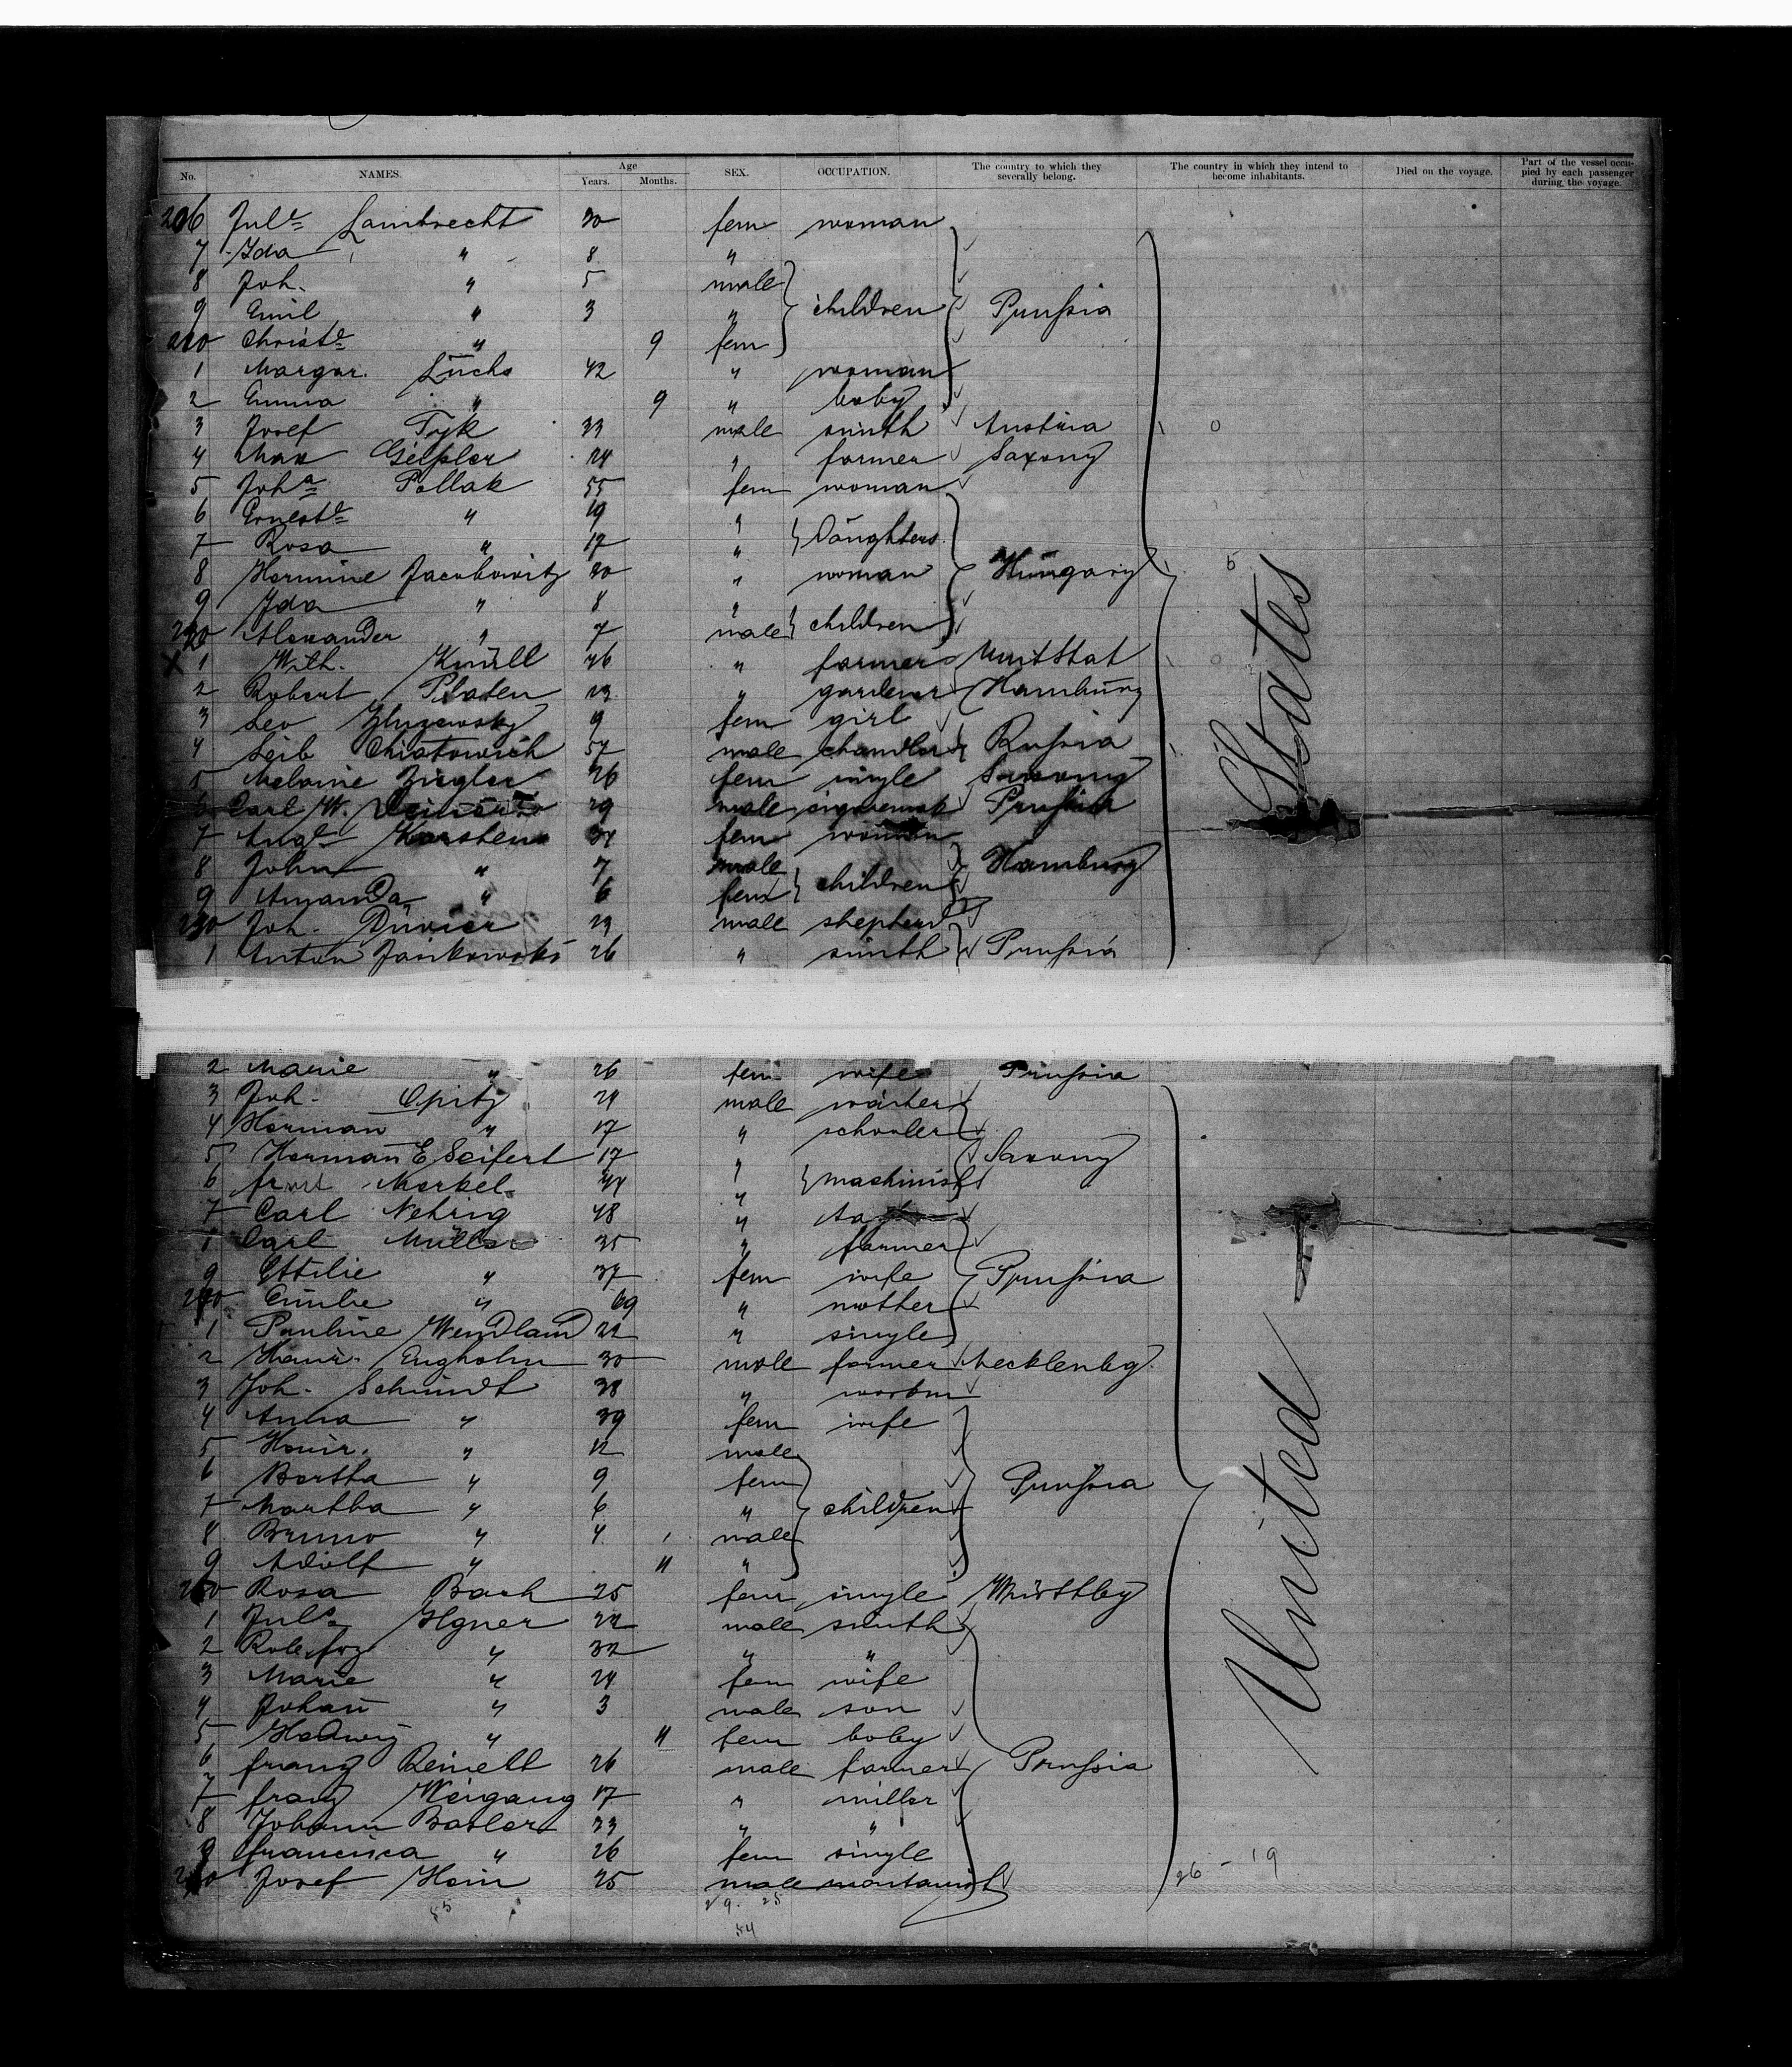 No. NAMES. Age Years. Months. SEX. OCCUPATION. The country to which they severally belong. The country in which they intend to become inhabitants. Died on the voyage. Part of the vessel occupied by each passenger during the voyage.
206 Jul.e Lambrecht 30 fem woman
7 Ida " 8 "
8 Joh. " 5 male
9 Emil " 3 " children Prußia
210 Christ.e " 9 fem
1 Margar. Lüchs 42 " woman
2 Emma " 9 " baby
3 Josef Tyk 33 male smith Austria 0
4 Max Geißler 24 " farmer Saxony
5 Joh.a Pollak 55 fem woman
6 Ernest.e " 19 "
7 Rosa " 17 " Daughters
8 Hermine Jacobowitz 30 " woman Hungary 5
9 Ida " 8 "
220 Alexander " 7 male children
X 1 Wilh. Knüll 26 " farmer UnitStat 0
2 Robert Platen 23 " gardener Hamburg
3 Leo 9 fem girl
4 Leib Chistowich 57 male chandler Rußia
5 Melanie Ziegler 26 fem single Saxony
6 Carl W. 29 male cigarremak Prußia
7 Aug.e Karstens 34 fem woman
8 John " 7 male Hamburg
9 Amanda " 6 fem children
230 Joh. Düvier 23 male shepherd
1 Anton Jasikowski 26 " smith Prußia
States
2 Marie " 26 fem wife Prußia
3 Joh. Opitz 24 male waiter
4 Herman " 17 " schooler
5 Herman E. Seifert 17 " Saxony
6 Merkel 44 " machinist
7 Carl Nehrig 48 "
8 Carl Müller 35 " farmer
9 Ottilie " 37 fem wife Prußia
240 Emilie " 69 " mother
1 Pauline Wendland 22 " single
2 Heinr. Engholm 30 male farmer Mecklenbg.
3 Joh. Schmidt 38 " workm
4 Anna " 39 fem wife
5 Heinr. " 12 male
6 Bertha " 9 fem Prußia
7 Martha " 6 " children
8 Bruno " 4 male
9 Adolf " 11 "
250 Rosa Bach 25 fem single Württbg
1 Jul.s Ilgner 22 male smith
2 " 32 " "
3 Marie " 24 fem wife
4 Johan̄ " 3 male son
5 Hedwig " 11 fem baby
6 franz Reinelt 26 male farmer Prußia
7 franz Weigang 17 " miller
8 Johann Basler 33 " "
9 francisca " 26 fem single
260 Josef Hein 25 male
United
26 - 19
55
29. 25
54